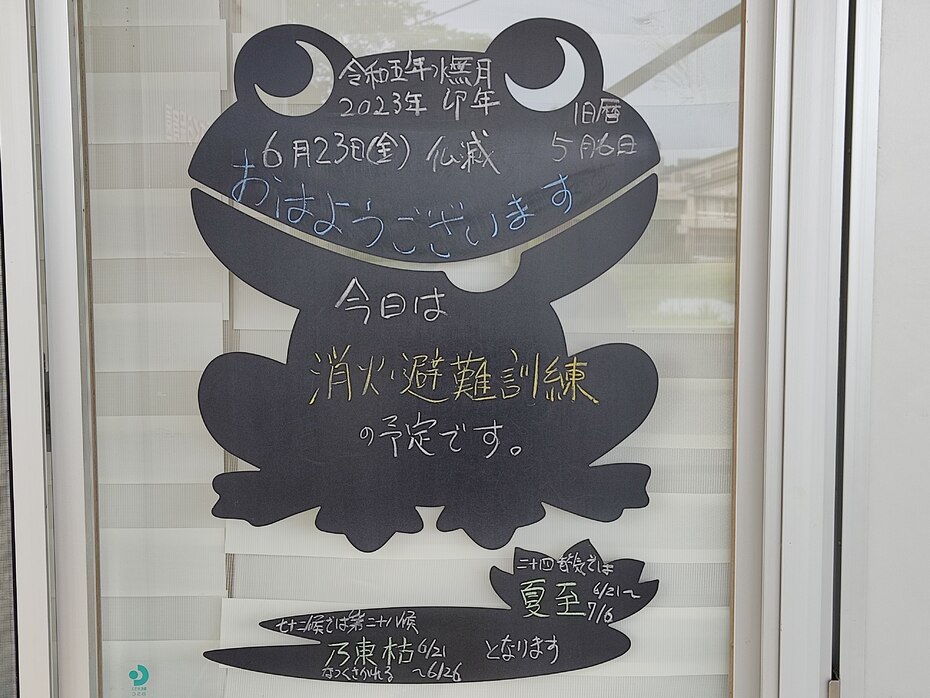 令和五年水無月
2023年 卯年
旧暦
6月23日(金) 仏滅 5月6日
おはようございます
今日は
消火・避難訓練
の予定です。
二十四節気では
夏至 6/21〜
7/6
七十二候では第二十八候
乃東枯 6/21
なつくさかれる 〜6/26
となります